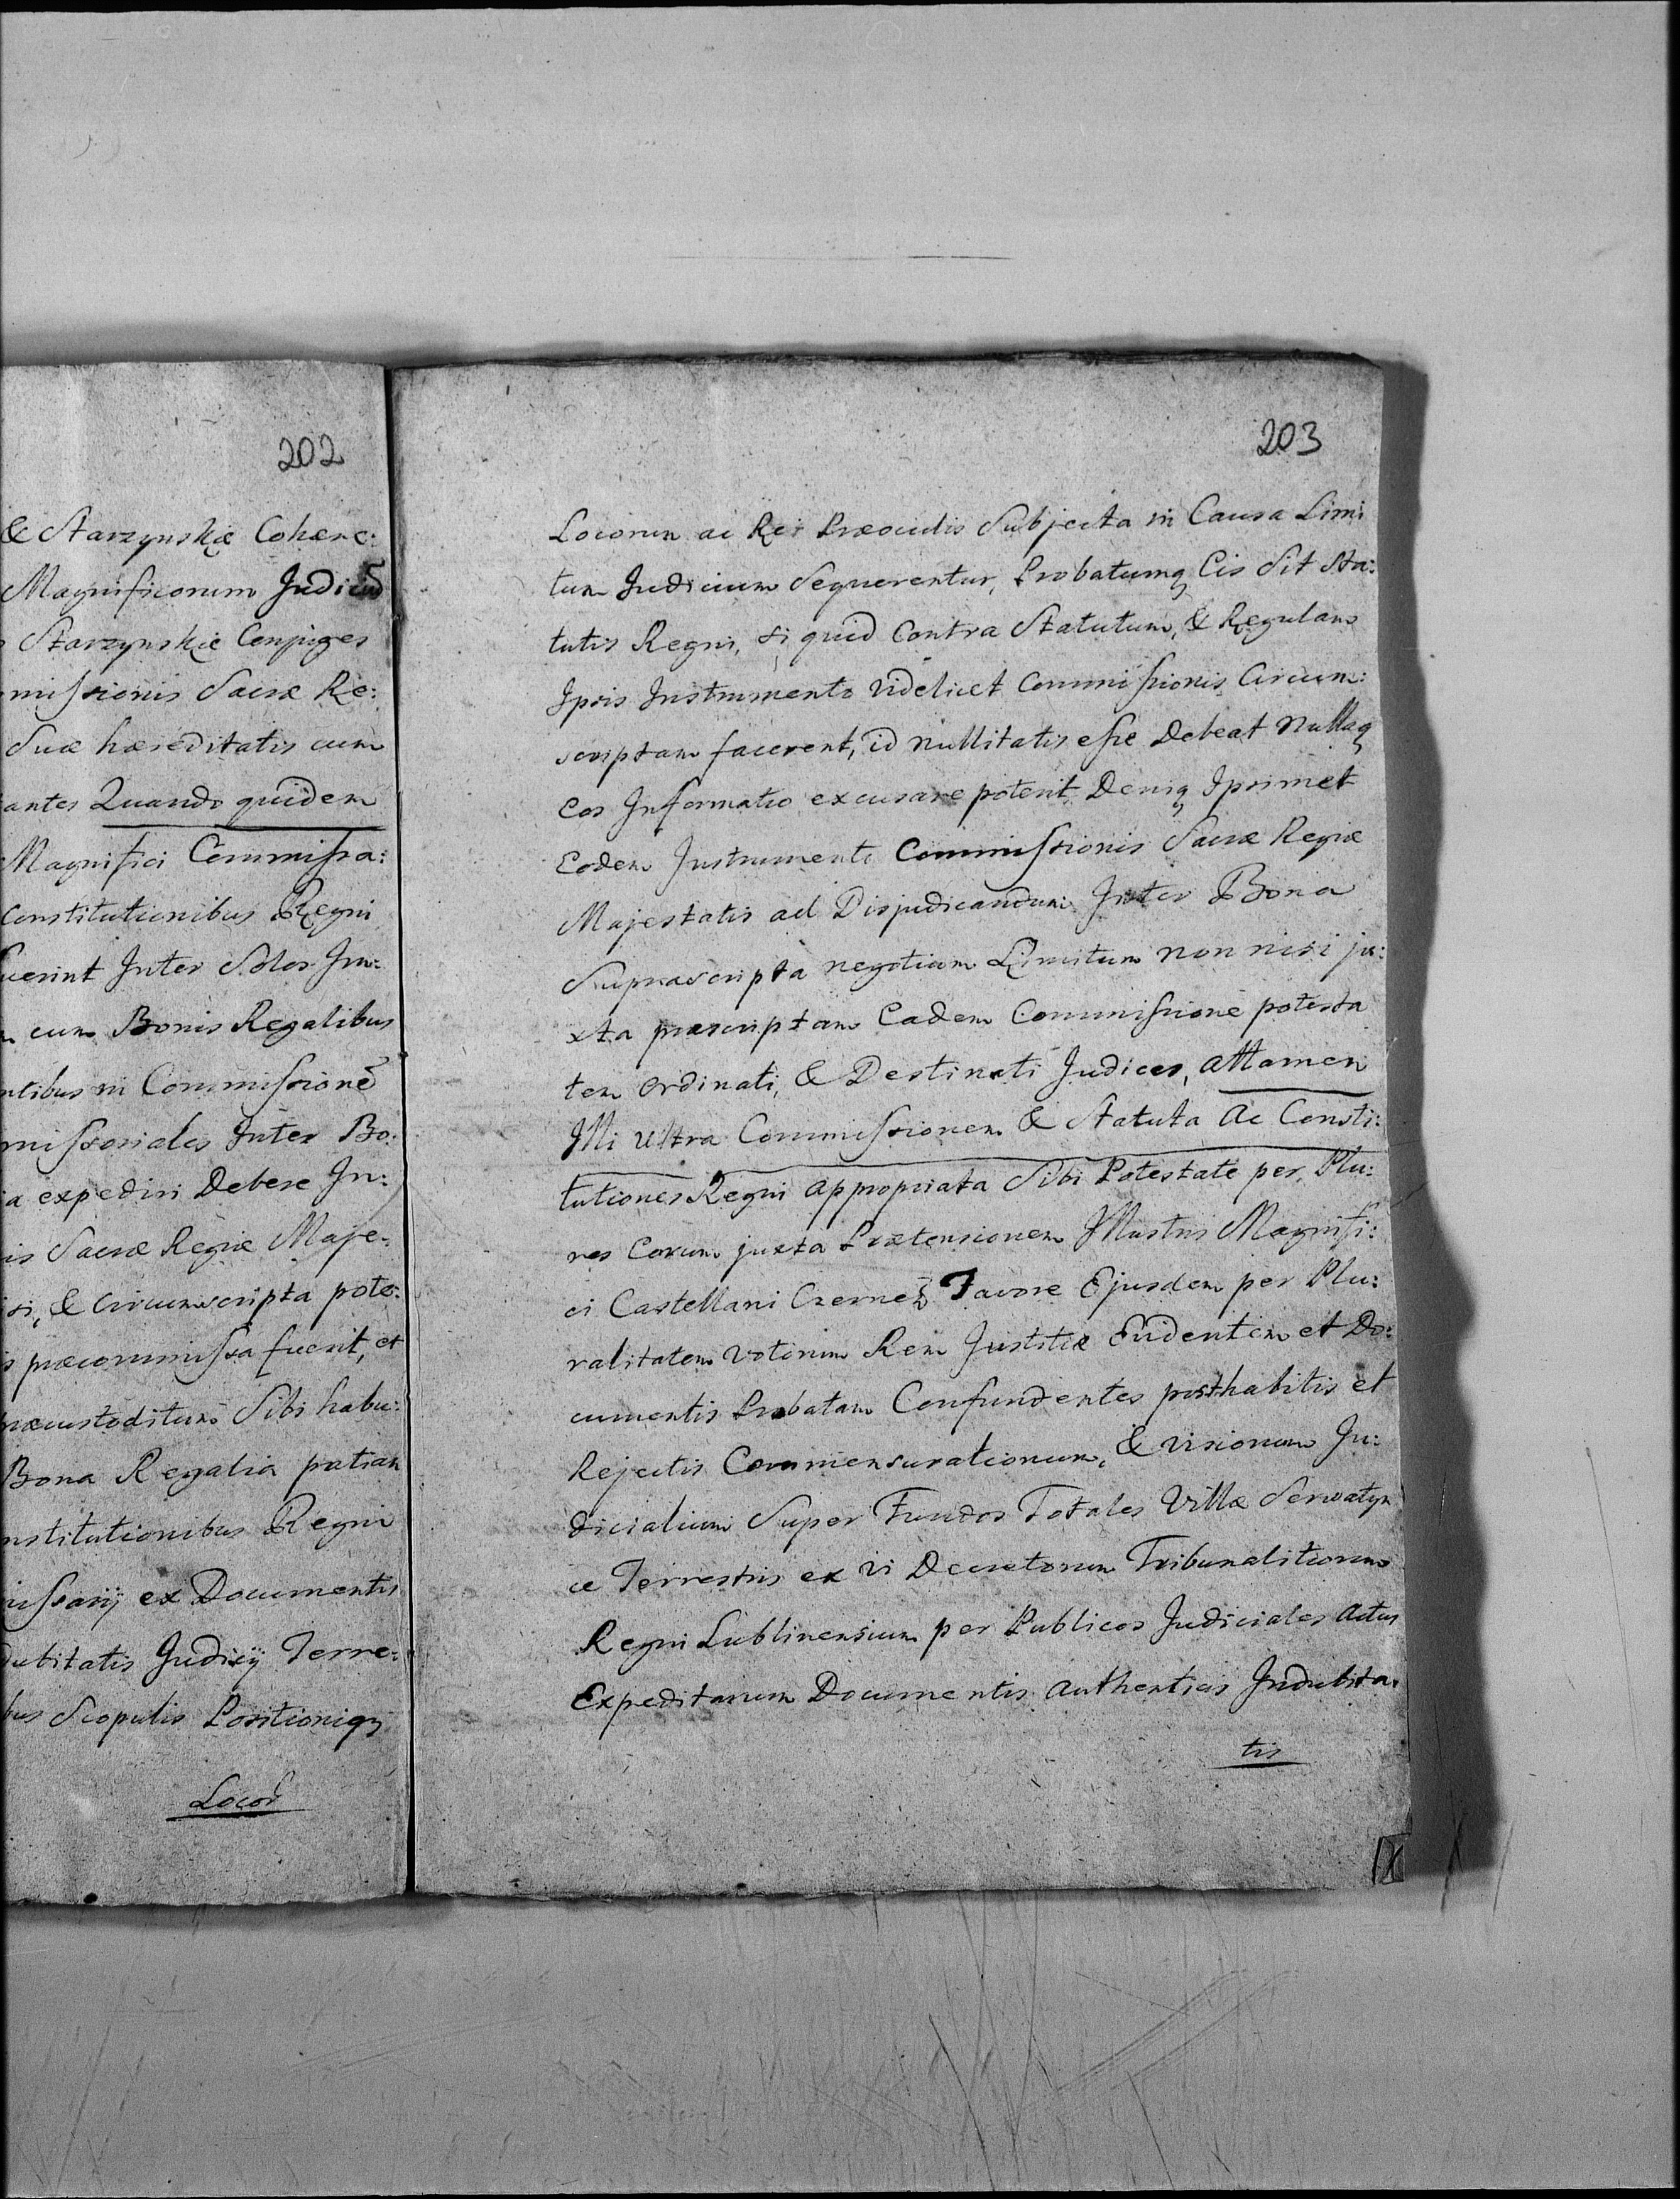 202
& Starzynskie Cohære:
Magnificorum Judicũ
Starzynskie Conjuges
missionis Sacræ Re:
Suæ hæreditatis cum
antes Quando quidem
Magnifici Commissa:
Constitutionibus Regni
uerint Inter Solos Im:
cum Bonis Regalibus
ntibus in Commissionē
missoriales Inter Bo:
a expediri Debere In:
is Sacræ Regiæ Maje:
si, & circumscripta pote:
s præcommissa fuerit, et
præcustoditum Sibi habu:
Bona Regalia patian
nstitutionibus Regni
issarij ex Documentis
dubitatis Judicij Terre:
bus Scopulis Positioniq
Locor
203
Locorum ac Rei Præoculis Subjecta in Causa Limi
tum Judicium Sequerentur, Probatumq Eis Sit Sta:
tutis Regni, si quid Contra Statutum, & Regulam
Ipsis Instrumento videlicet Commissionis Circum:
scriptam facerent, id Nullitatis esse Debeat Nullaq
Eos Informatio excusare poterit Deniq Ipsimet
Eodem Instrumento Commissionis Sacræ Regiæ
Majestatis ad Disjudicandum Inter Bona
Supra scripta negotium Limitum non nisi ju:
xta præscriptam Eadem Commissione potesta
tem Ordinati, & Destinati Judices, attamen
Illi ultra Commissionem & Statuta ac Consti:
tutiones Regni appropriata Sibi Potestate per Plu:
res Eorum juxta Prætensionem Illustris Magnifi:
ci Castellani Czernẽ Favore Ejusdem per Plu:
ralitatem Votorum Rem Justitiæ Evidentem et Do:
cumentis Probatam Confundentes posthabitis et
Rejectis Commensurationum, & visionum Ju:
dicialium Super Fundos Totales Villæ Serwatyn
ce Terrestris ex vi Decretorum Tribunalitiorum
Regni Lublinensium per Publicos Judiciales Actus
Expeditarum Documentis authenticis Indubita:
tis